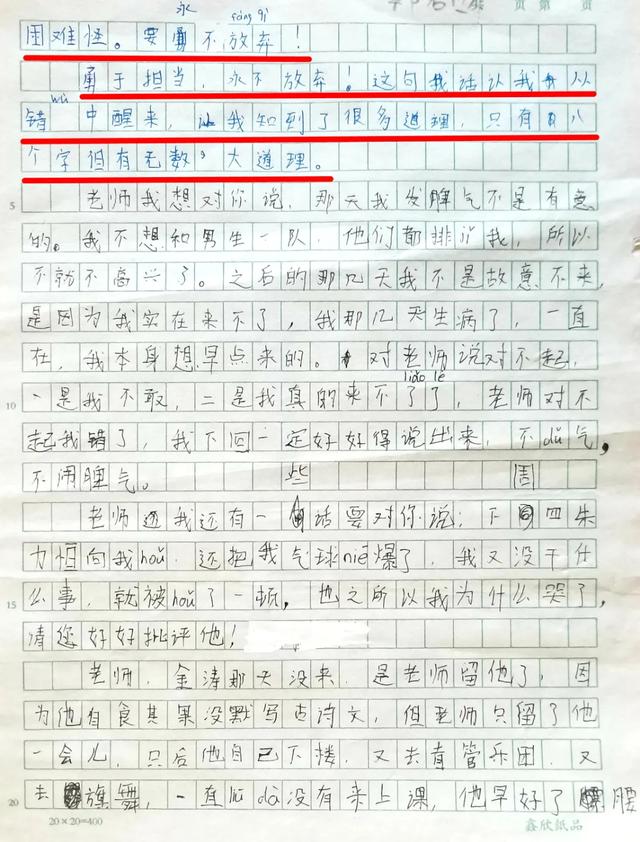 永 fàng qì
困难怪。要勇不放弃！
勇于担当，永不放弃！这句我话认我从
wù
错中醒来，让我知到了很多道理，只有八
个字但有无数大道理。
5 老师我想对你说，那天我发脾气不是有意
的。我不想和男生一队，他们都排jǐ我，所以
不就不高兴了。之后的那几天我不是故意不来，
是因为我实在来不了，我那几天生病了，一直
在，我本身想早点来的。对老师说对不起，
liǎo le
10 一是我不敢，二是我真的来不了了，老师对不
起我错了，我下回一定好好得说出来，不dǔ气，
不闹脾气。 些 周
老师还我还有一话要对你说：下四朱
力恒向我hǒu，还把我气球niē爆了，我又没干什
15 么事，就被hǒu了一顿，也之所以我为什么哭了，
请您好好批评他！
老师，金涛那天没来，是老师留他了，因
为他有食其果没默写古诗文，但老师只留了他
一会儿，只后他自己下楼，又去青管乐团，又
20 去旗舞，一直liū dá没有来上课，他早好了腰
20×20=400 鑫欣纸品